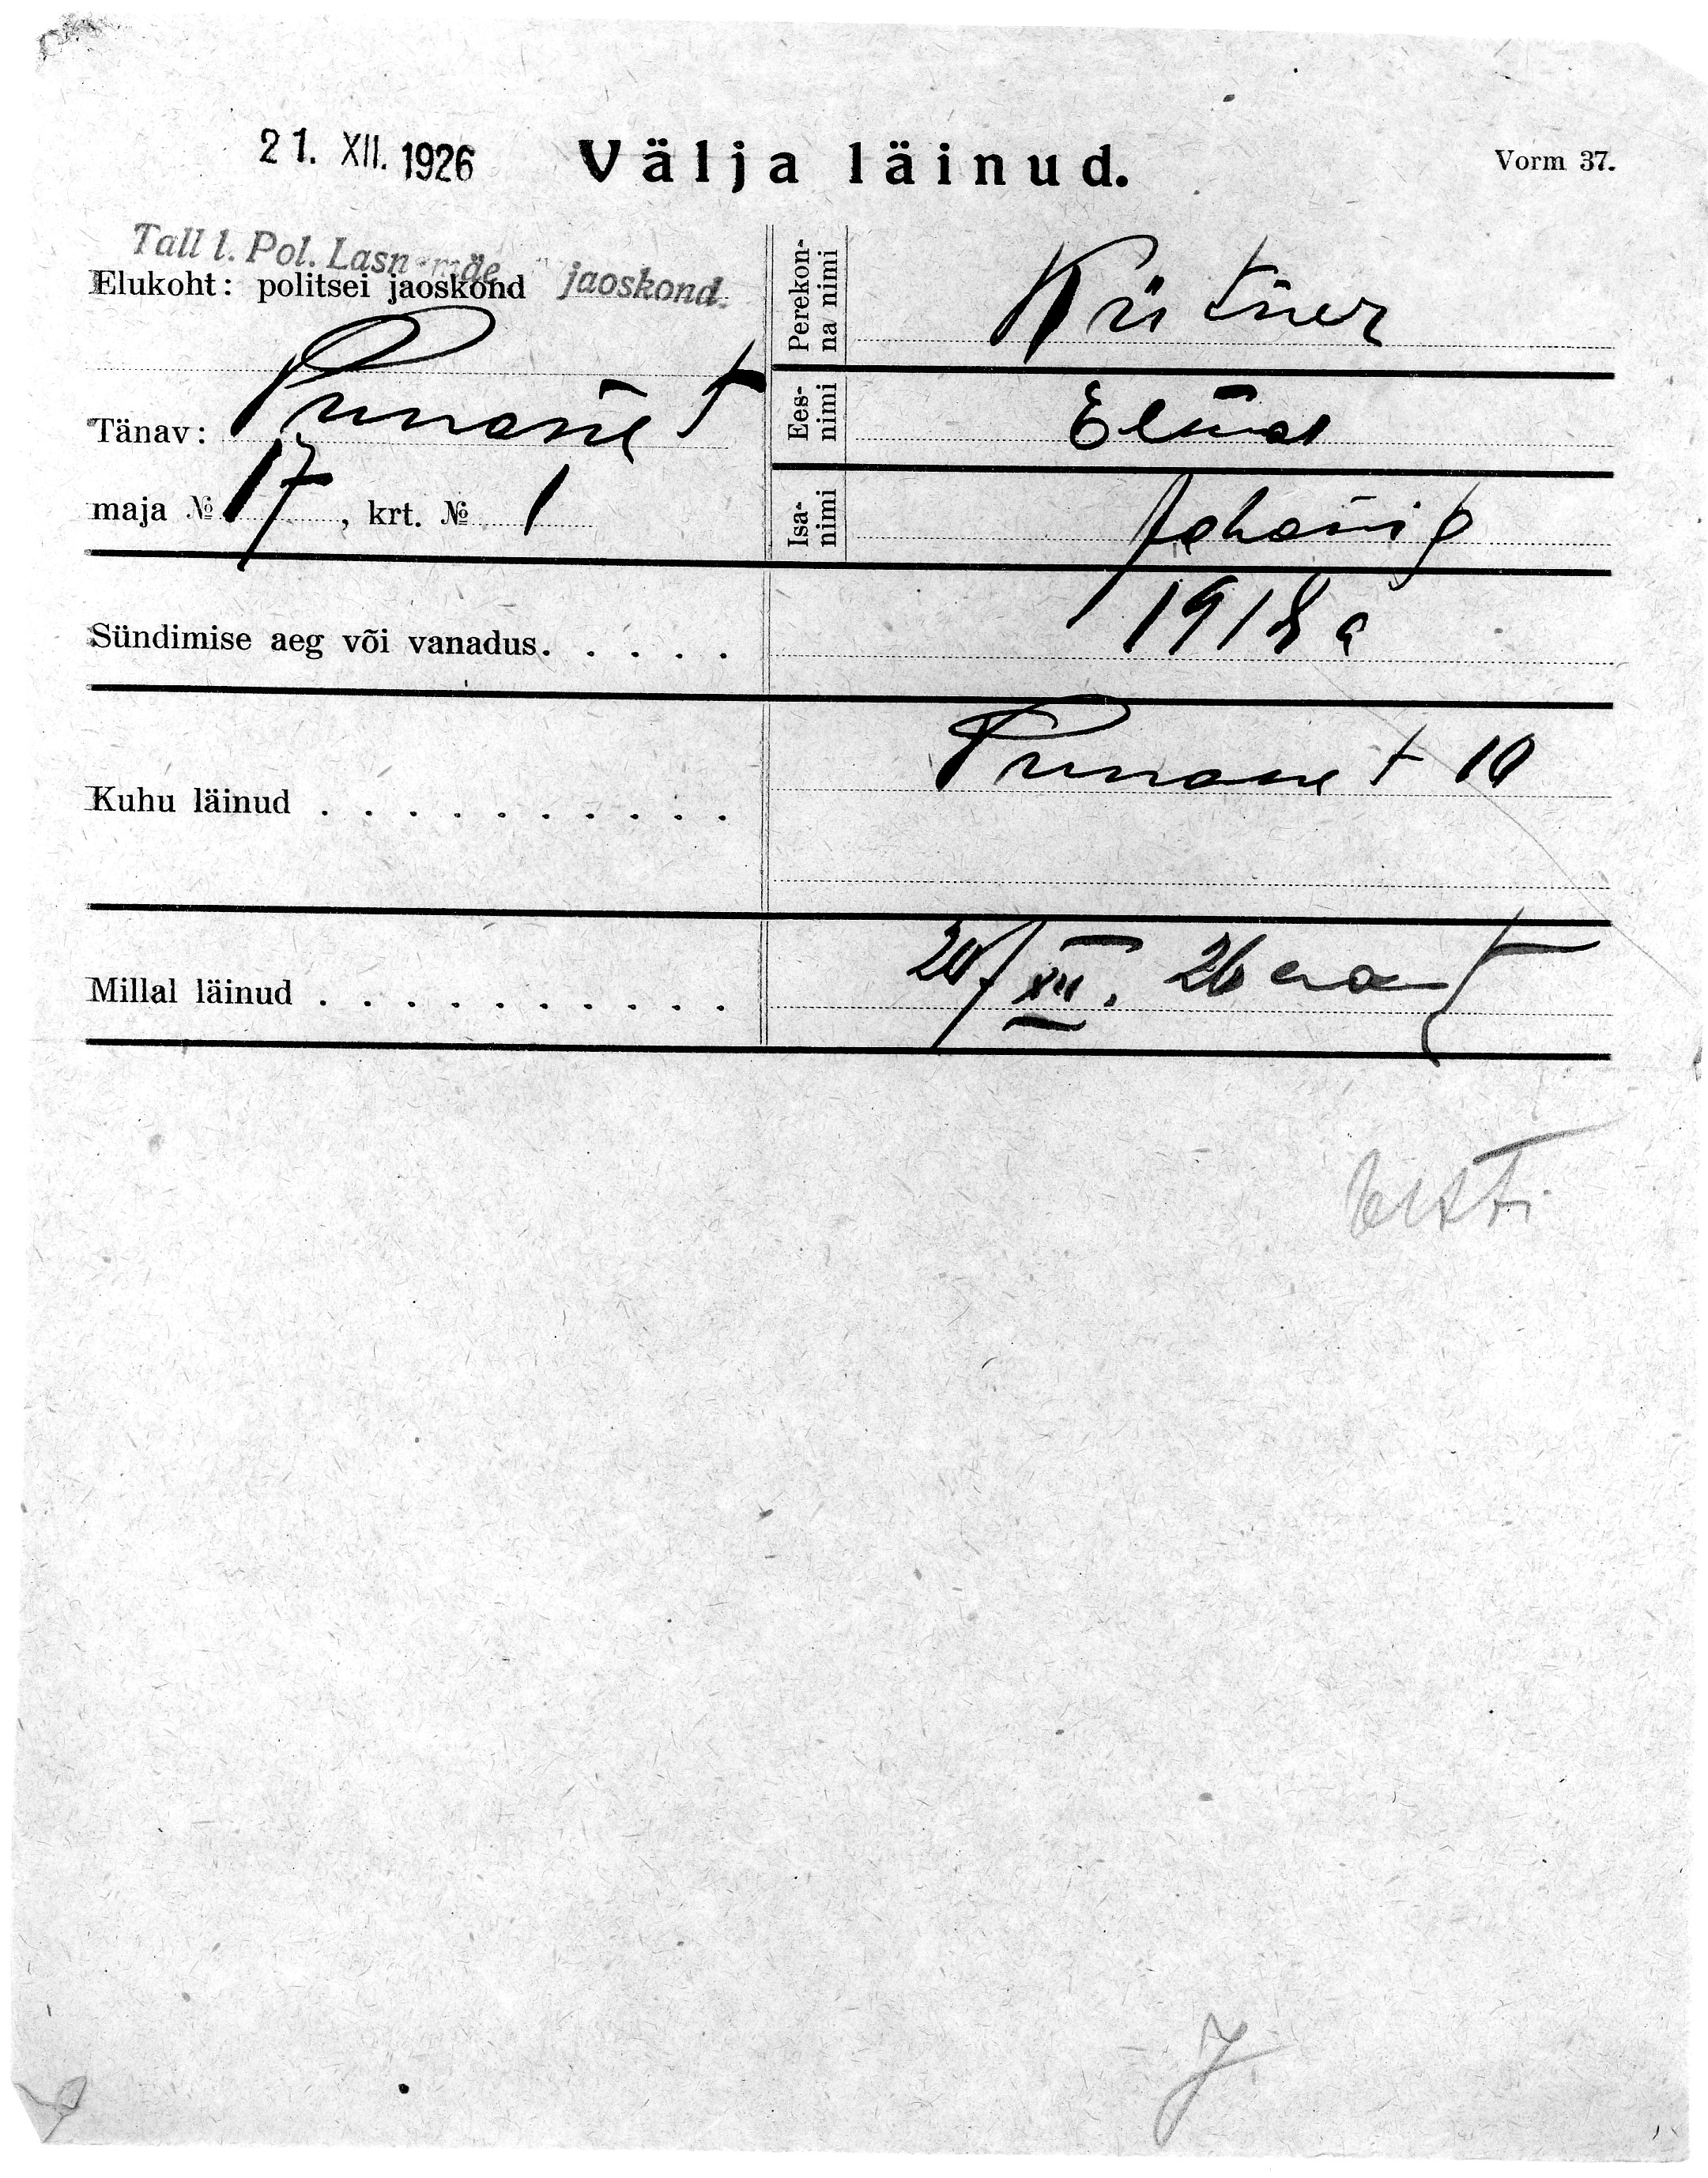 21. XII. 1926
Välja läinud.
Vorm 37.
Tall l. Pol. Lasnamäe jaoskond.
Elukoht: politsei jaoskond
Tänav: Punane t
maja № 17, krt. № 1
Perekonna nimi
Eesnimi
Isanimi
Sündimise aeg või vanadus. . . . . . 1918 a
Kuhu läinud . . . . . . . . . . Punane t 10
Millal läinud . . . . . . . . . . 20/XII. 26